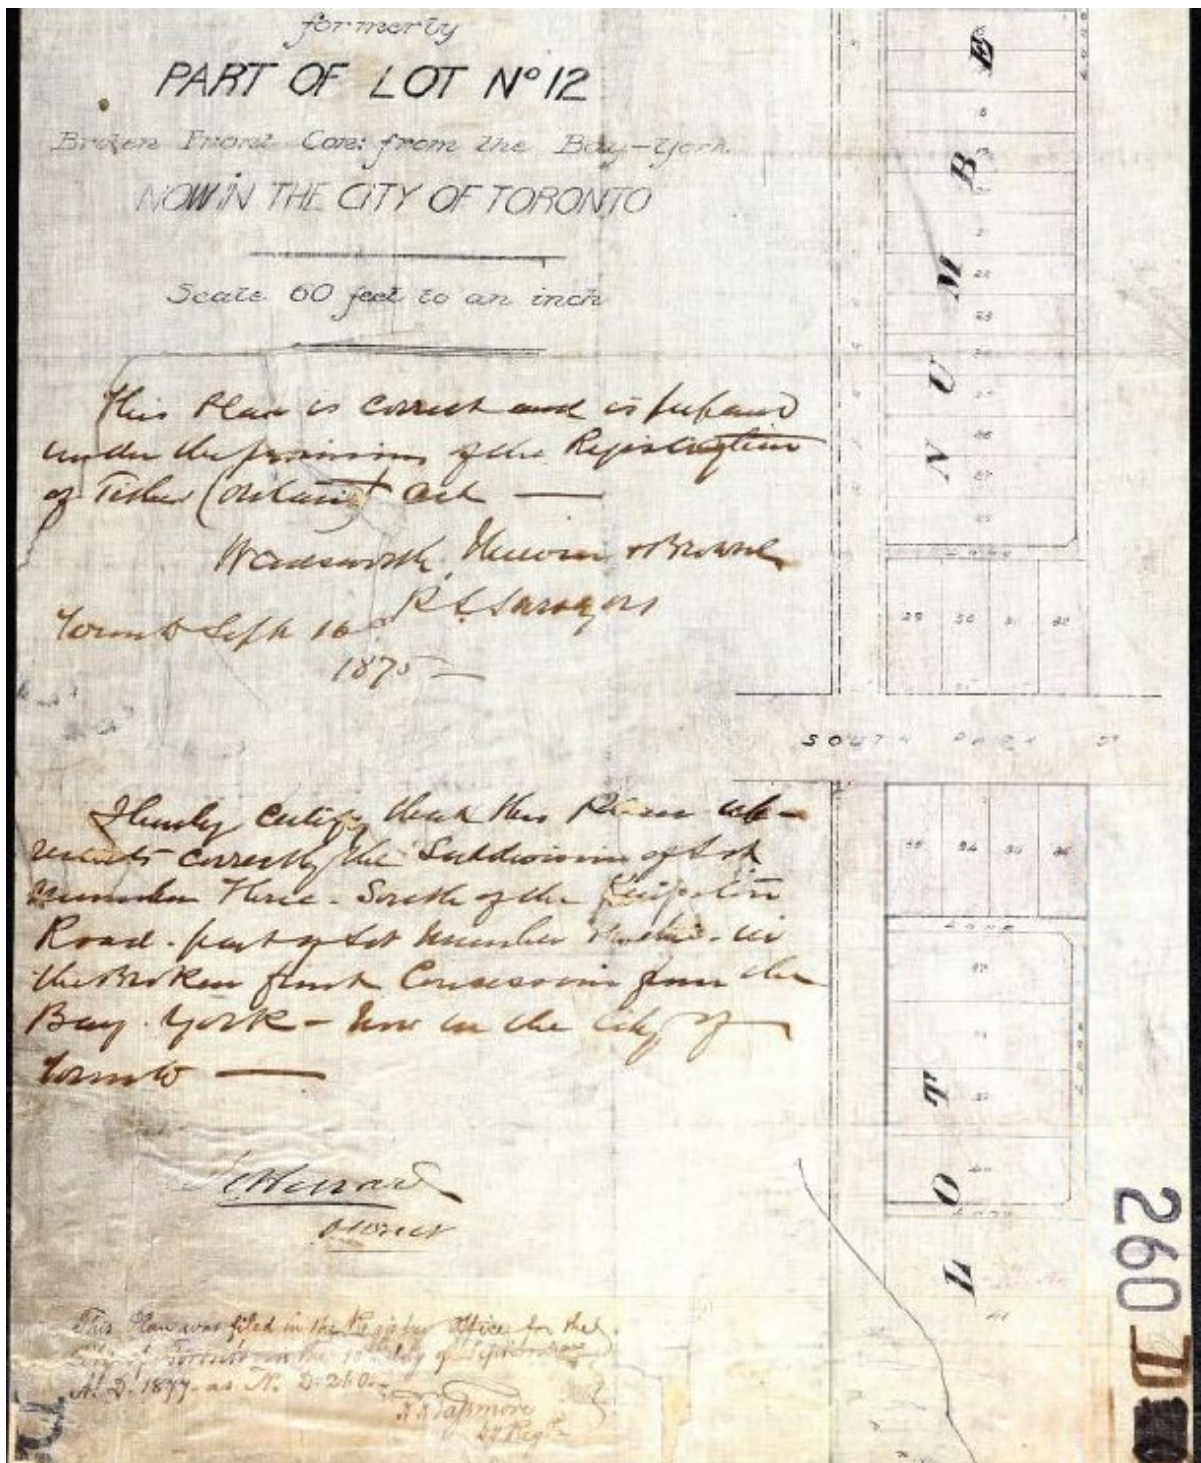 formerly
PART OF LOT Nº 12
Broken Front Con: from the Bay-York.
NOW IN THE CITY OF TORONTO
Scale 60 feet to an inch
This Plan is correct and is prepared
under the provisions of the Registration
of Titles (Ontario) Act —
Wadsworth, Unwin & Browne
P. L. Surveyors
Toronto Sept 16
1875 —
I hereby certify that this Plan rep-
resents correctly the Subdivision of Lot
Number Three - South of the Kingston
Road - part of Lot Number Twelve - in
the Broken front Concession from the
Bay. York - Now in the City of
Toronto —
Owner
This Plan was filed in the Registry Office for the
City of Toronto on the 10th day of September
A. D. 1877 as No. D. 260.
Dy Regr
LOT NUMBER
22
23
26
27
LANE
29 30 31 32
SOUTH PARK ST
34 36
LANE
LANE
LANE
41
260 D